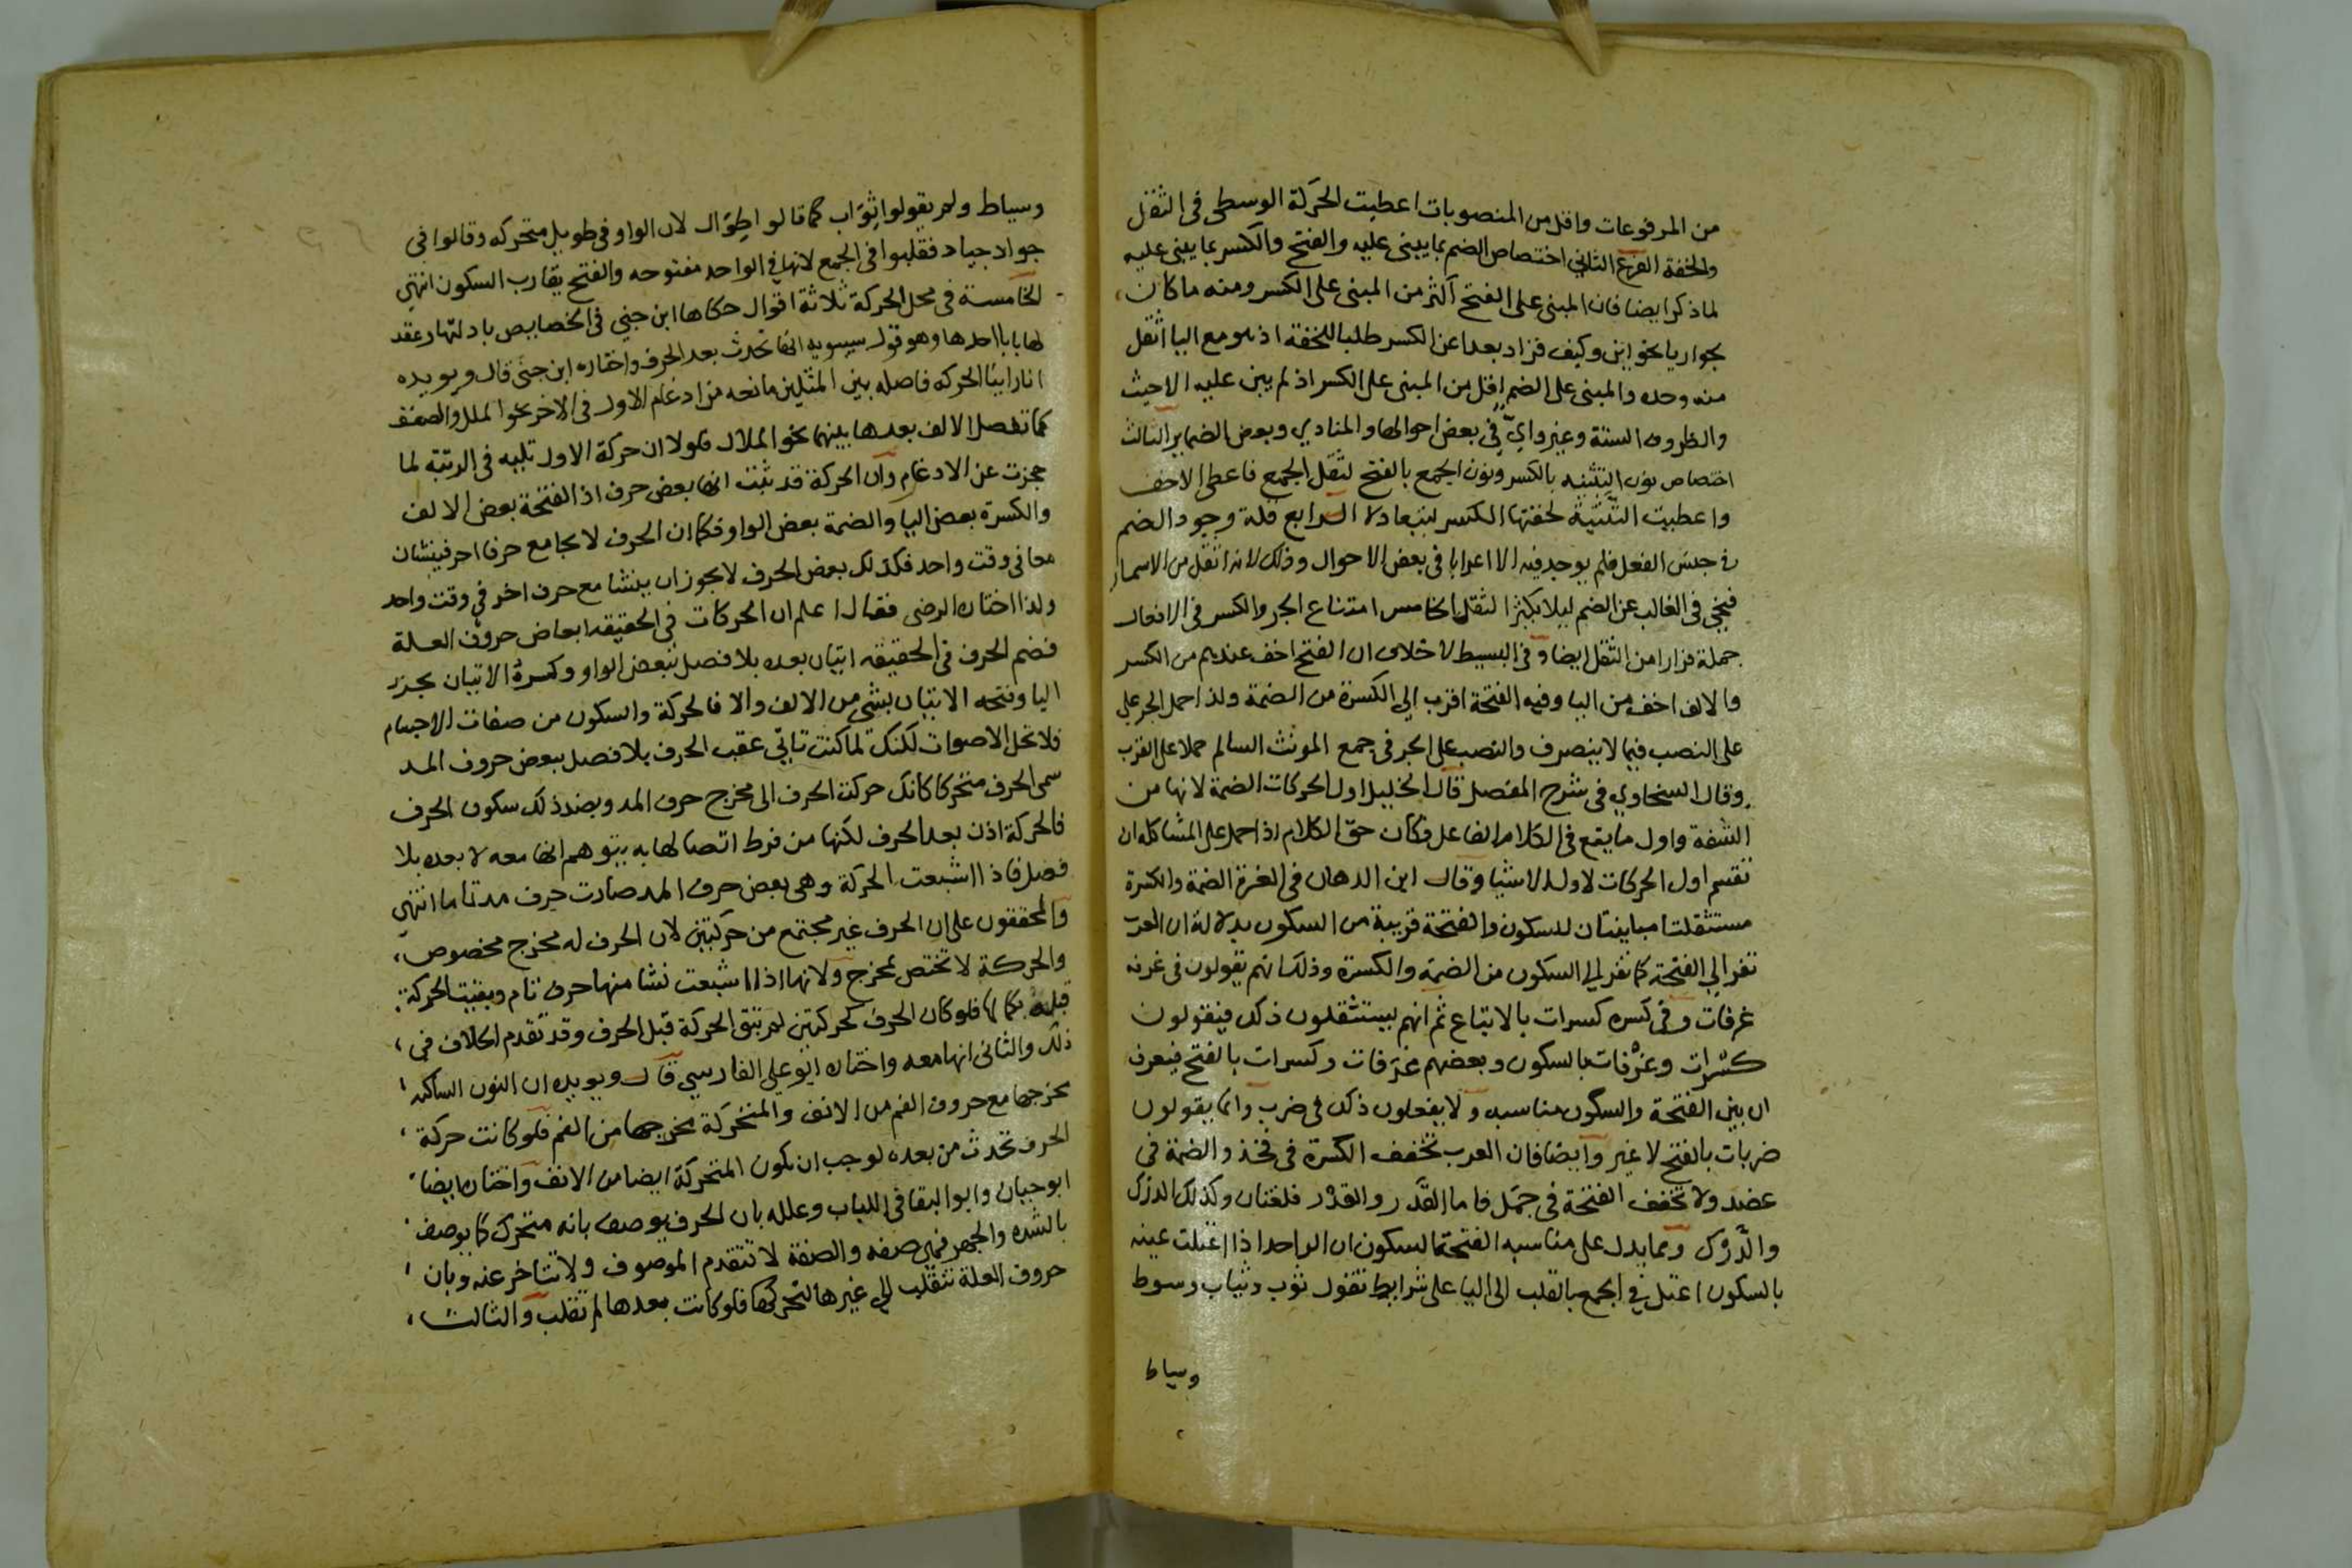 من المرفوعات واقل من المنصوبات اعطيت الحركة الوسطى فى الثقل
والخفة الفرع الثانى اختصاص الضم بما يبنى عليه والفتح والكسر بما يبنى عليه
لما ذكر ايضا فان المبنى على الفتح اكثر من المبنى على الكسر ومنه ما كان
بجوار يا نحو اين وكيف فزاد بعدا عن الكسر طلبا للخفة اذ هو مع اليا اثقل
منه وحده والمبنى على الضم اقل من المبنى على الكسر اذ لم يبن عليه الا حيث
والظروف الستة وغير واىّ فى بعض احوالها والمنادي وبعض الضماير الثالث
اختصاص نون التثنيه بالكسر ونون الجمع بالفتح لثقل الجمع فاعطى الاخف
واعطيت التثنية لخفتها الكسر ليتعادلا الرابع قلة وجود الضم
فى جنس الفعل فلم يوجد فيه الا اعرابا فى بعض الاحوال وذلك لانه اثقل من الاسما
فنحي فى الغالب عن الضم ليلا يكثر الثقل الخامس امتناع الجر والكسر فى الافعال
جملة فرارا من الثقل ايضا وفى البسيط لا خلاف ان الفتح اخف عندهم من الكسر
والالف اخف من اليا وفيه الفتحة اقرب الى الكسرة من الضمة ولذا حمل الجر على
على النصب فيما لا ينصرف والنصب على الجر فى جمع المونث السالم حملا على القرب
وقال السخاوي فى شرح المفصل قال الخليل اول الحركات الضمة لانها من
الشفة واول ما يقع فى الكلام الفاعل فكان حق الكلام اذا حمل على المشاكله ان
تقسم اول الحركات لاول الاشيا وقال ابن الدهان فى الغرة الضمة والكسرة
مستثقلتا مباينتان للسكون والفتحة قريبة من السكون بدلالة ان العرب
تفر الى الفتحة كما تفر الى السكون من الضمة والكسرة وذلك انهم يقولون فى غرفه
غرفات وفى كسره كسرات بالاتباع ثم انهم يستثقلون ذلك فيقولون
كسْرات وغرْفات بالسكون وبعضهم غرَفات وكسرات بالفتح فيعرف
ان بين الفتحة والسكون مناسبه ولا يفعلون ذلك فى ضرب وانما يقولون
ضربات بالفتح لا غير وايضا فان العرب تخفف الكسرة فى فخذ والضمة فى
عضد ولا تخفف الفتحة فى جمَل فاما القَدَر والقدْر فلغتان وكذلك الدرَك
والدّرْك ومما يدل على مناسبه الفتحة السكون ان الواحد اذا اعتلت عينه
بالسكون اعتل فى الجمع بالقلب الى اليا على شرايط تقول ثوب وثياب وسوط
وسياط
وسياط ولم يقولوا ثِوَاب كما قالوا طِوَال لان الواو فى طويل متحركه وقالوا فى
جواد جياد فقلبوا فى الجمع لانها فى الواحد مفتوحه والفتح يقارب السكون انتهى
الخامسة فى محل الحركة ثلاثة اقوال حكاها ابن جني فى الخصايص بادلتها وعقد
لها بابا احدها وهو قول سيبويه انها تحدث بعد الحرف واختاره ابن جنى قال ويويده
انا راينا الحركه فاصله بين المثلين مانعه من ادغام الاول فى الاخر نحو الملل والضفف
كما تفصل الالف بعدها بينهما نحو الملال فلولا ان حركة الاول تليه فى الرتبة لما
حجزت عن الادغام وان الحركة قد ثبت انها بعض حرف اذ الفتحة بعض الالف
والكسرة بعض اليا والضمة بعض الواو فكما ان الحرف لا يجامع حرفا اخر فينشان
معا فى وقت واحد فكذلك بعض الحرف لا يجوز ان ينشا مع حرف اخر فى وقت واحد
ولذا اختاره الرضى فقال اعلم ان الحركات فى الحقيقه ابعاض حروف العلة
فضم الحرف فى الحقيقه اتيان بعده بلا فصل ببعض الواو وكسرة الاتيان بجزء
اليا وفتحه الاتيان بشى من الالف والا فالحركة والسكون من صفات الاجسام
فلا تحل الاصوات لكنك لما كنت تاتى عقب الحرف بلا فصل ببعض حروف المد
سمى الحرف متحركا كانك حركت الحرف الى مخرج حرف المد وبضد ذلك سكون الحرف
فالحركة اذن بعد الحرف لكنها من فرط اتصالها به يتوهم انها معه لا بعده بلا
فصل فاذا اشبعت الحركة وهى بعض حرف المد صارت حرف مد تاما انتهى
والمحققون على ان الحرف غير مجتمع من حركتين لان الحرف له مخرج مخصوص
والحركة لا تختص بمخرج ولانها اذا اشبعت نشا منها حرف تام وبقيت الحركة
قبله بكمالها فلو كان الحرف كحركتين لم تبق الحركة قبل الحرف وقد تقدم الخلاف فى
ذلك والثانى انها معه واختاره ابو على الفارسي قال ويويده ان النون الساكنه
مخرجها مع حروف الفم من الانف والمتحركة مخرجها من الفم فلو كانت حركة
الحرف تحدث من بعده لوجب ان تكون المتحركة ايضا من الانف واختاره ايضا
ابو حيان وابو البقا فى اللباب وعلله بان الحرف يوصف بانه متحرك كما يوصف
بالشده والجهر فهى صفه والصفة لا تتقدم الموصوف ولا تتاخر عنه وبان
حروف العلة تنقلب الى غيرها لتحركها فلو كانت بعدها لم تقلب والثالث